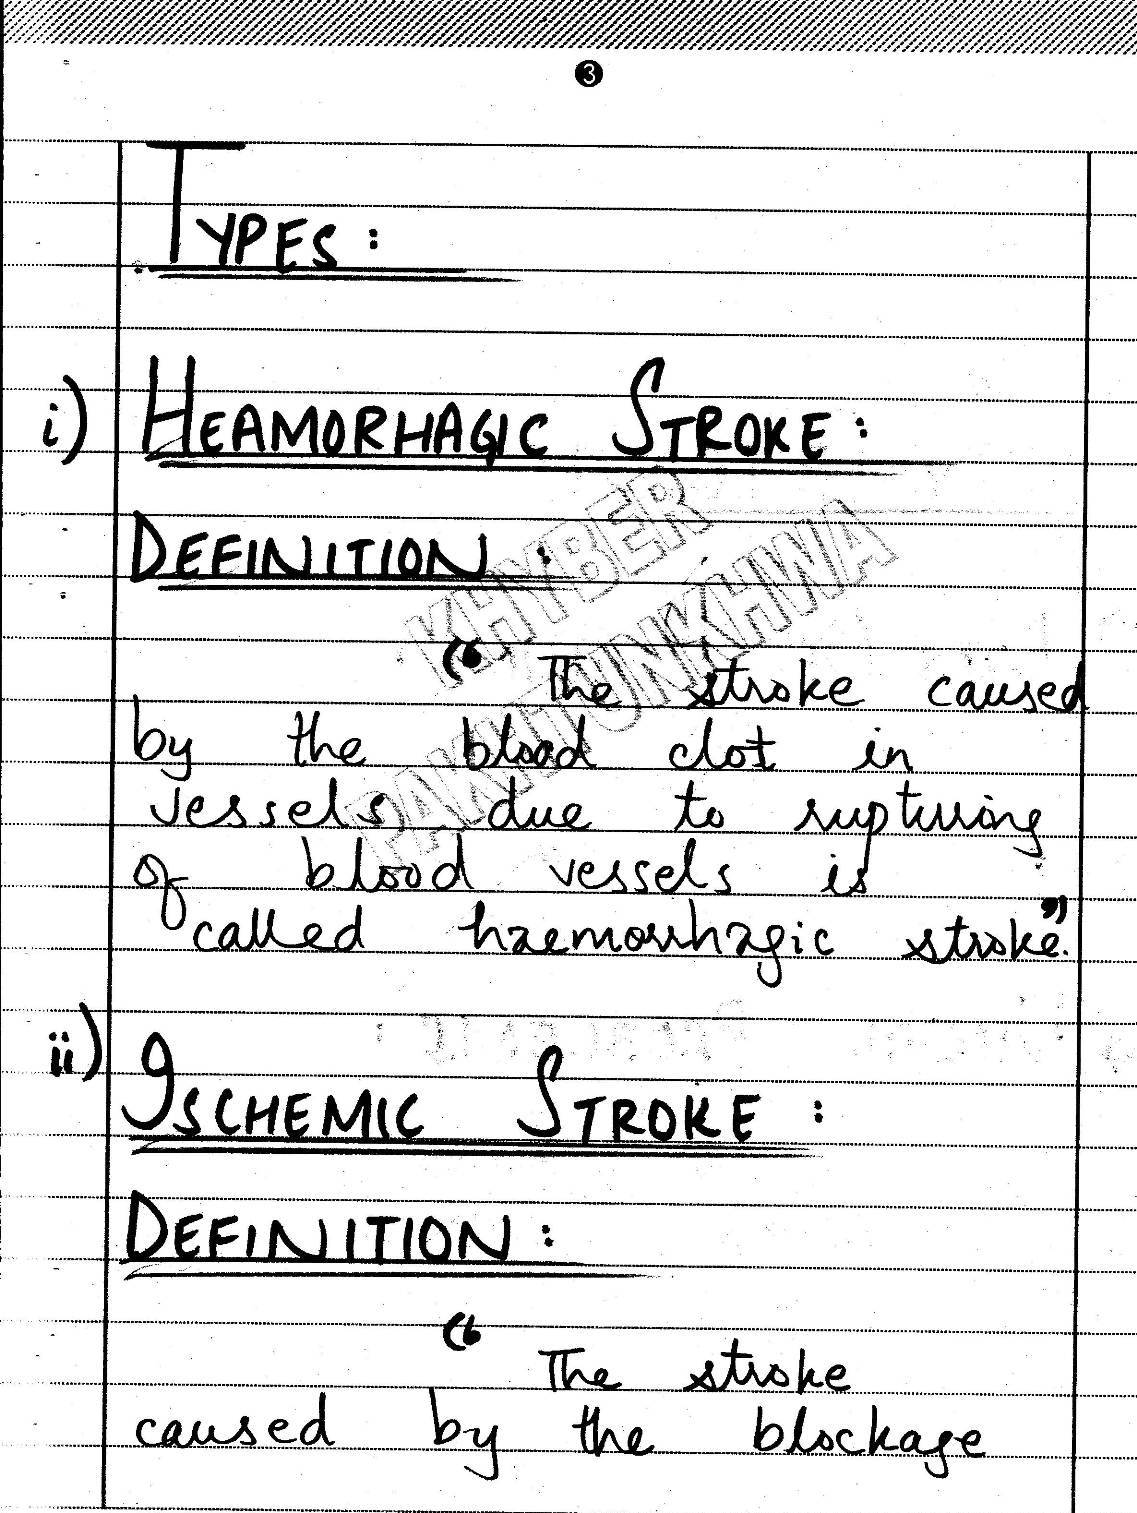 3
TYPES:
i) HEAMORHAGIC STROKE:
DEFINITION:
KHYBER
PAKHTUNKHWA
“ The stroke caused
by the blood clot in
vessels due to rupturing
of blood vessels is
called haemorrhagic stroke.”
ii) ISCHEMIC STROKE:
DEFINITION:
“ The stroke
caused by the blockage